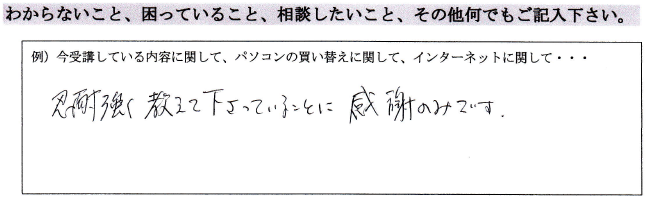 わからないこと、困っていること、相談したいこと、その他何でもご記入下さい。
例）今受講している内容に関して、パソコンの買い替えに関して、インターネットに関して・・・
忍耐強く教えて下さっていることに感謝のみです.